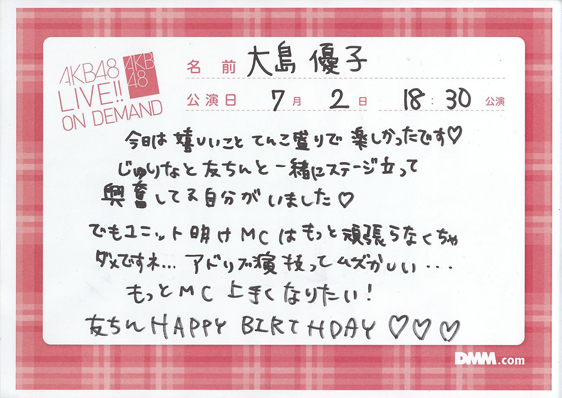 AKB48
LIVE!!
ON DEMAND
AKB
48
名前 大島 優子
公演日 7月 2日 18:30 公演
今日は嬉しいこと てんこ盛りで 楽しかったです♡
じゅりなと友ちんと一緒にステージ立って
興奮してる自分がいました♡
でもユニット明けMCはもっと頑張らなくちゃ
ダメですネ... アドリブ演技ってムズかしい...
もっとMC上手くなりたい!
友ちんHAPPY BIRTHDAY♡♡♡
DMM.com